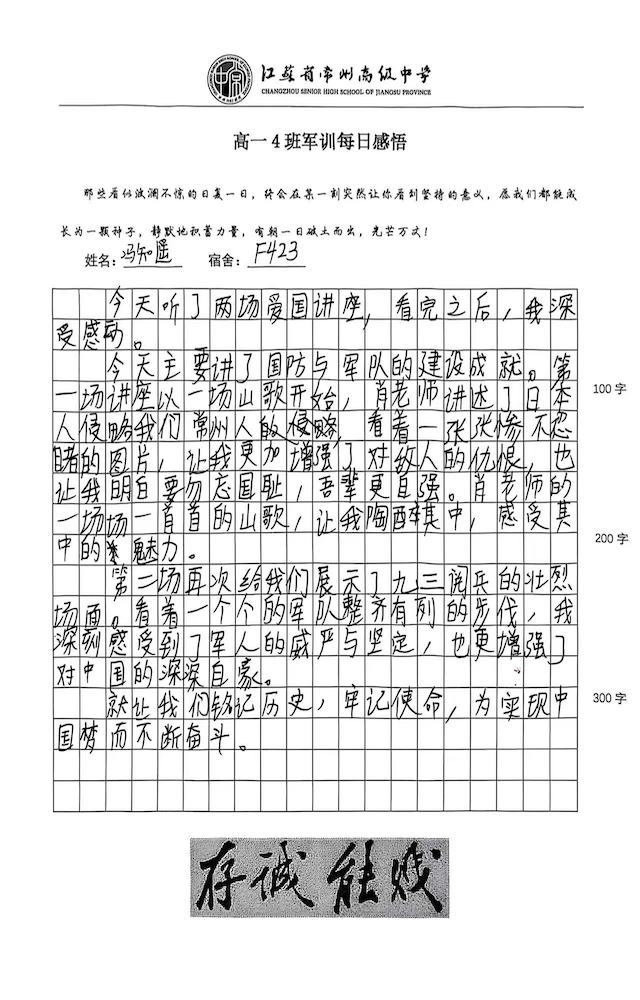 江苏省常州高级中学
CHANGZHOU SENIOR HIGH SCHOOL OF JIANGSU PROVINCE
高一4班军训每日感悟
那些看似波澜不惊的日复一日，终会在某一刻突然让你看到坚持的意义，愿我们都能成
长为一颗种子，静默地积蓄力量，有朝一日破土而出，光芒万丈！
姓名：冯知遥 宿舍：F423
今天听了两场爱国讲座，看完之后，我深
受感动。
今天主要讲了国防与军队的建设成就。第
一场讲座以一场山歌开始，肖老师讲述了日本 100字
人侵略我们常州人的侵略，看着一张张惨不忍
睹的图片，让我更加增强了对敌人的仇恨，也
让我明白要勿忘国耻，吾辈更自强。肖老师的
一场场一首首的山歌，让我陶醉其中，感受其
中的魅力。 200字
第二场再次给我们展示了九三阅兵的壮烈
场面。看着一个个的军队整齐有列的步伐，我
深刻感受到了军人的威严与坚定，也更增强了
对中国的深深自豪。
就让我们铭记历史，牢记使命，为实现中 300字
国梦而不断奋斗。
存诚能贱